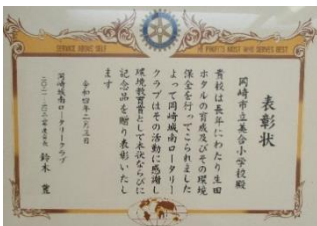 SERVICE ABOVE SELF
HE PROFITS MOST WHO SERVES BEST
表彰状
岡崎市立美合小学校殿
貴校は長年にわたり生田
ホタルの育成及びその環境
保全を行ってこられました
よって岡崎城南ロータリー
クラブはその活動に感謝し
環境教育賞として本状ならびに
記念品を贈り表彰いたし
ます
岡崎城南ロータリークラブ
鈴木